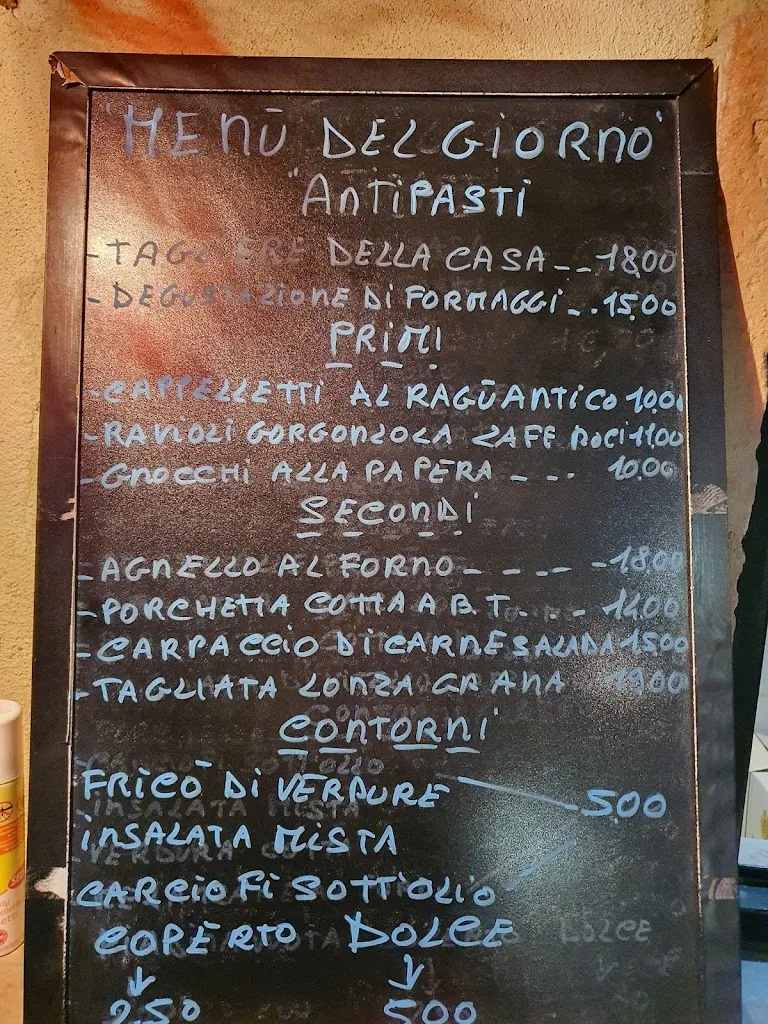 "MENÙ DEL GIORNO"
"ANTIPASTI
- TAGLIERE DELLA CASA _ _ 18,00
- DEGUSTAZIONE DI FORMAGGI _ . . 15,00
PRIMI
- CAPPELLETTI AL RAGÙ ANTICO 10,00
- RAVIOLI GORGONZOLA ZAFE NOCI 11,00
- GNOCCHI ALLA PAPERA _ - - 10,00
SECONDI
- AGNELLO AL FORNO - - - - - 18,00
- PORCHETTA COTTA A B.T. - - 14,00
- CARPACCIO DI CARNE SALADA 15,00
- TAGLIATA LONZA GRANA
CONTORNI
FRICÒ DI VERDURE 5,00
INSALATA MISTA
CARCIOFI SOTT'OLIO
COPERTO DOLCE DOLCE
2,50 5,00